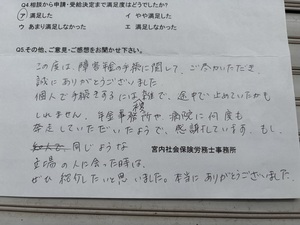 Q4.相談から申請・受給決定まで満足度はどうでしたか？
ア 満足した イ やや満足した
ウ あまり満足しなかった エ 満足しなかった
Q5.その他、ご意見・ご感想をお聞かせ下さい。
この度は、障害年の手続に関して、ご尽力いただき、
誠にありがとうございました
個人で手続きするには複雑で、途中で止めていたかも
しれません。年金事務所や病院に何度も
奔走していただいたようで、感謝しています。もし、
同じような
宮内社会保険労務士事務所
立場の人に会った時は、
ぜひ紹介したいと思いました。本当にありがとうございました